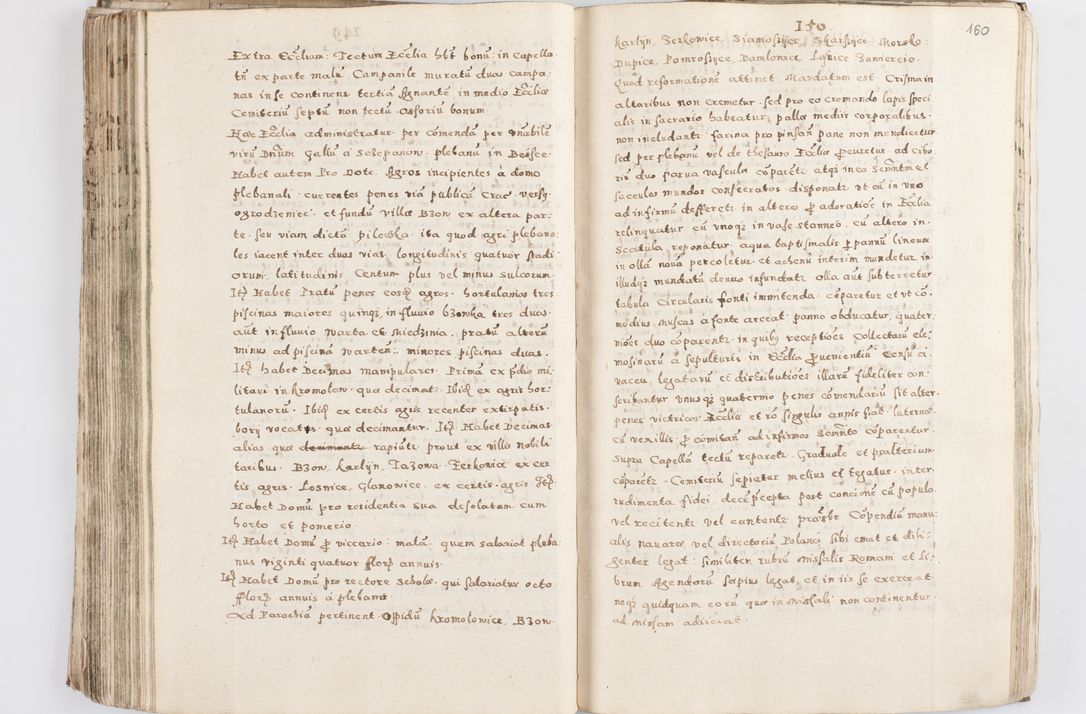 Extra Ecclum: Tectum Ecclia hbt bonu: in capella
tn ex parte malu Campanile muratu duas campa:
nas in se continens tertia signante in medio Eccliæ
Cemiteriu septu non tectu. Ossoriu bonum.
Hæc Ecclia administratur per comenda per vnabile
viru Dnum Gallu a Sczepanow. plebanu in Beisce.
Habet autem Pro Dote. Agros incipientes a domo
plebanali. currentes penes via publica Crac. versq
ogrodzemiec. et fundu Villæ Bzow ex altera par:
te. seu viam dicta pileczka. ita quod agri plebana:
les iacent inter duas vias. longitudinis quatuor stadi
orum. latitudinis Centum plus vel minus sulcorum.
Ite Habet Pratu penes eosq agros. hortulanias tres
piscinas maiores quinqz, in fluuio bzowka tres duas.
aut in fluuio Warta et Miedzinia. pratu alteru
minus ad piscina Warten: minores piscinas duas.
Ite habet Decimas manipulares. Prima ex pdio mi:
litari in kromolow. qua decimat. Ibid ex agris hor:
tulanoru. Ibid ex certis agris recenter extirpatis.
bory vocatis quæ decimantur. Ite Habet Decimas
alias quæ decimant rapiutr prout ex villis nobili
taribus. Bzow, karlijn, Iazowa. Zerkowice ex cer
tis agris. Losnice, Glanowice. ex certis agris Ite
Habet Domu pro residentia sua desolatam. cum
horto et pomerio.
Ite Habet Domu p viccario: mala. quem salariat pleba
nus viginti quatuor flor annuis.
Ite Habet Domu pro rectore Scholæ. qui salariatur octo
flore annuis a plebano.
Ad Parochia pertinent. Oppidu kromolowice, Bzow.
150
160
karlijn, Zerkowice, Siamoszijce, Skarszijce Morsko.
Dupice, Pomroszijce, Damlonice, Losnice Zawiercio.
Quod reformatione attinet. Mandatum est. Crisma in
altaribus non cremetur. sed pro eo cremando lapis speci
alis in sacrario habeatur. pallæ mediis corporalibus.
non includantr. farina pro pinsan pane non mendicetur
sed per plebanu vel de thesauro Eccliæ pcuretur. ad Cibo
riu duo parua vascula coparetr atqz in ea Scmntm et
sacculos mundos Consecratos disponatr vt cu in vno
ad infirmu defferetr in altero p adoratioe in Ecclia
relinquatur. cu vnoqz in vase stanneo. cu altero in
Scatula reponatur. aqua baptismalis p pannu lineum
in olla noua percoletur. et ahenu interim mundetur. in
illudqz mundatu denuo infundatr. Olla aut subterretur
tabula Circularis fonti immitenda. coparetur et vt co:
modius muscas a fonte arceat. panno obducatur, quater:
nioes duo coparentr. in quibq receptioes Collectaru ele:
mosinaru a sepulturis in Ecclia pueniientiu Censu ci.
vaceu legataru et distributioes illaru fideliter con:
scribantur vnusqz quaternio penes comendariu sit alter.
penes victricos Eccliæ et ro singulis annis fiat laternæ
cu vexillis p comitan ad infirmos Scmnto coparentur.
Supra Capella tectu reparetr. Graduale et psalterium
coparetr. Cemiteriu sepiatur melius et tegatur. inter
rudimenta fidei. dece pcepta post concione cu populo.
vel recitentr vel cantentr. prosbr Copendiu manu
alis Nauaræ vel directoriu Polanci sibi emat et dili:
genter legat: similiter rubru Missalis Romani et li:
brum Agendoru sæpius legat, et in iis se exerceat.
neqz quidquam eoru quæ in Missali non continentur.
ad Missam adiiciat.